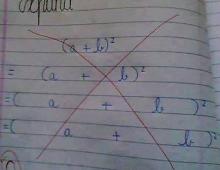 Expand
(a + b)²
= (a + b)²
= ( a + b )²
= ( a + b )²